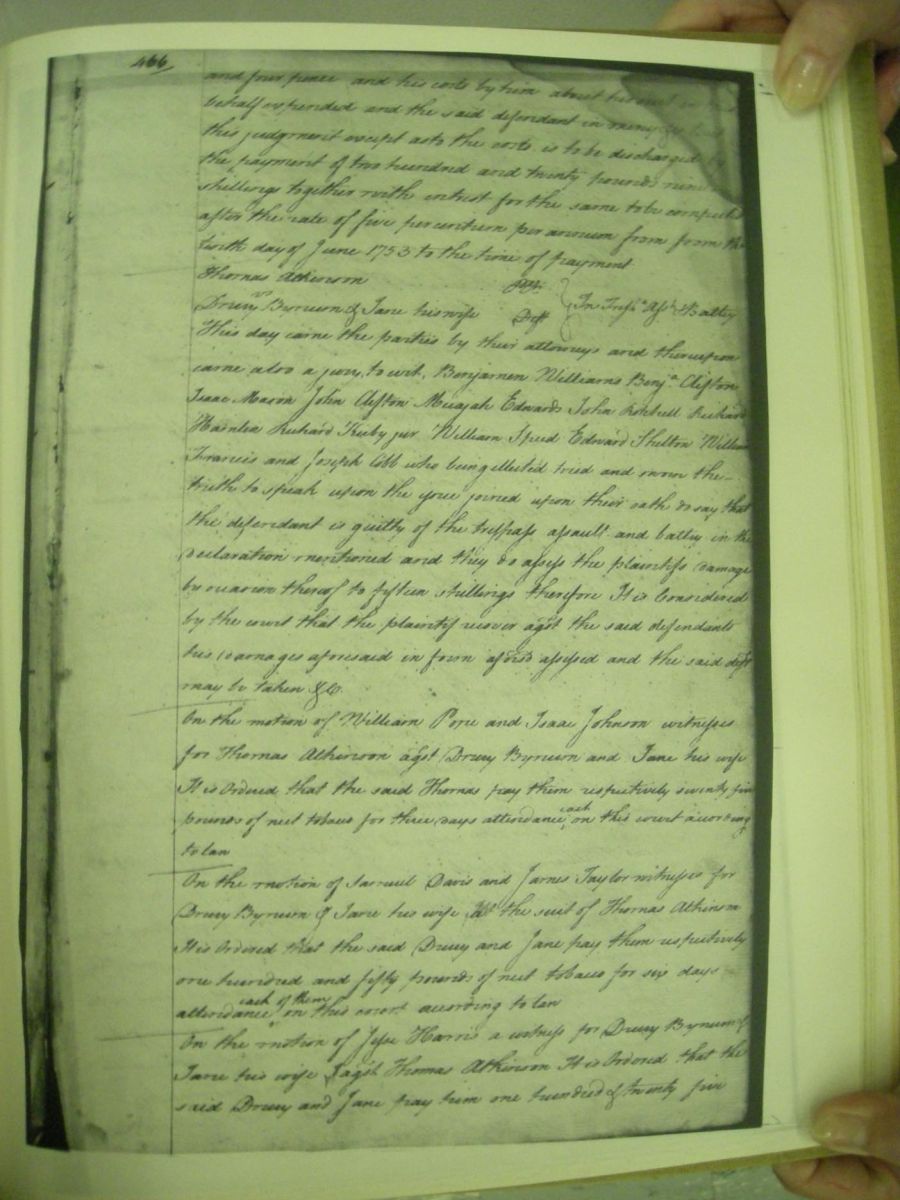 466,
and four pence and his costs by him about his suit in this
behalf expended and the said defendant in mercy &c. But
this judgment except as to the costs is to be discharged by
the payment of two hundred and twenty pounds nine
shillings together with intrest for the same to be computed
after the rate of five per centum per annum from from the
tenth day of June 1753 to the time of payment
Thomas Atkinson Plt.
Drury Bynum & Jane his wife Deft In Tresps Asst & Battry
This day came the parties by their attorneys and thereupon
came also a jury, to wit, Benjamen Williams Benja Clifton
Isaac Mason John Clifton Micajah Edwards John Richard
Hamlin Richard Kirby jur William Speed Edward Shelton William
Francis and Joseph Cobb who being ellected tried and sworn the
truth to speak upon the issue joined upon their oath do say that
the defendant is guilty of the trespass assault and battry in the
declaration mentioned and they do assess the plaintiffs damage
by reason thereof to fifteen shillings therefore It is Considered
by the court that the plaintif recover agst the said defendants
his damages aforesaid in form aforsd assessed and the said deft
may be taken &c.
On the motion of William Pope and Isaac Johnson witnesses
for Thomas Atkinson agst Drury Bynum and Jane his wife
It is Ordered that the said Thomas pay them respectively seventy five
pounds of nett tobacco for three days attendance each on this court according
to law
On the motion of Samuel Davis and James Taylor witnesses for
Drury Bynum & Jane his wife at the suit of Thomas Atkinson
It is Ordered that the said Drury and Jane pay them respectively
one hundred and fifty pounds of nett tobacco for six days
attendance each of them on this court according to law
On the motion of Jesse Harris a witness for Drury Bynum &
Jane his wife agst Thomas Atkinson It is Ordered that the
said Drury and Jane pay him one hundred & twenty five